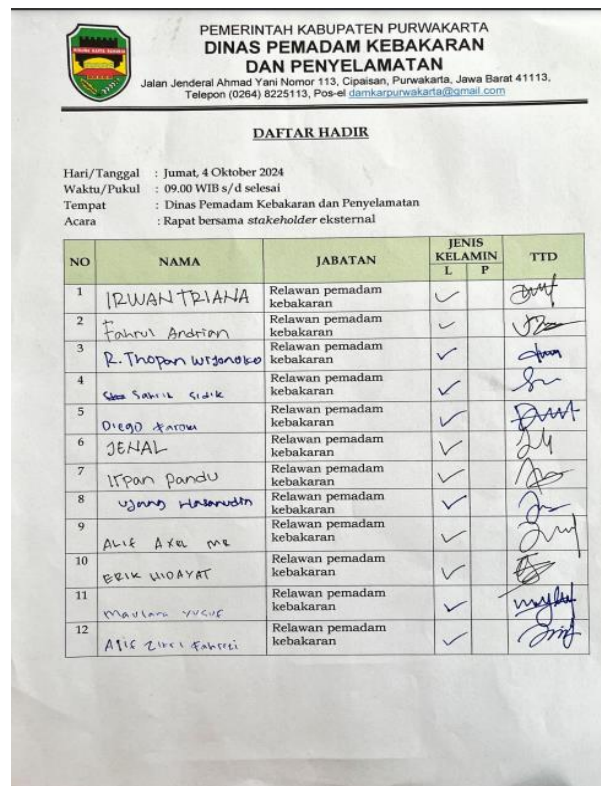 PEMERINTAH KABUPATEN PURWAKARTA
DINAS PEMADAM KEBAKARAN
DAN PENYELAMATAN
Jalan Jenderal Ahmad Yani Nomor 113, Cipaisan, Purwakarta, Jawa Barat 41113,
Telepon (0264) 8225113, Pos-el damkarpurwakarta@gmail.com
DAFTAR HADIR
Hari/Tanggal : Jumat, 4 Oktober 2024
Waktu/Pukul : 09.00 WIB s/d selesai
Tempat : Dinas Pemadam Kebakaran dan Penyelamatan
Acara : Rapat bersama stakeholder eksternal
NO NAMA JABATAN JENIS KELAMIN TTD
L P
1 IRWAN TRIANA Relawan pemadam kebakaran
2 Fahrul Andrian Relawan pemadam kebakaran
3 R. Thopan Wijonoko Relawan pemadam kebakaran
4 Sahrik Sidik Relawan pemadam kebakaran
5 Diego Relawan pemadam kebakaran
6 JENAL Relawan pemadam kebakaran
7 Irpan Pandu Relawan pemadam kebakaran
8 Ujang Hasanudin Relawan pemadam kebakaran
9 ALIF AXEL Relawan pemadam kebakaran
10 ERIK HIDAYAT Relawan pemadam kebakaran
11 Maulana Yusuf Relawan pemadam kebakaran
12 Fahrezi Relawan pemadam kebakaran